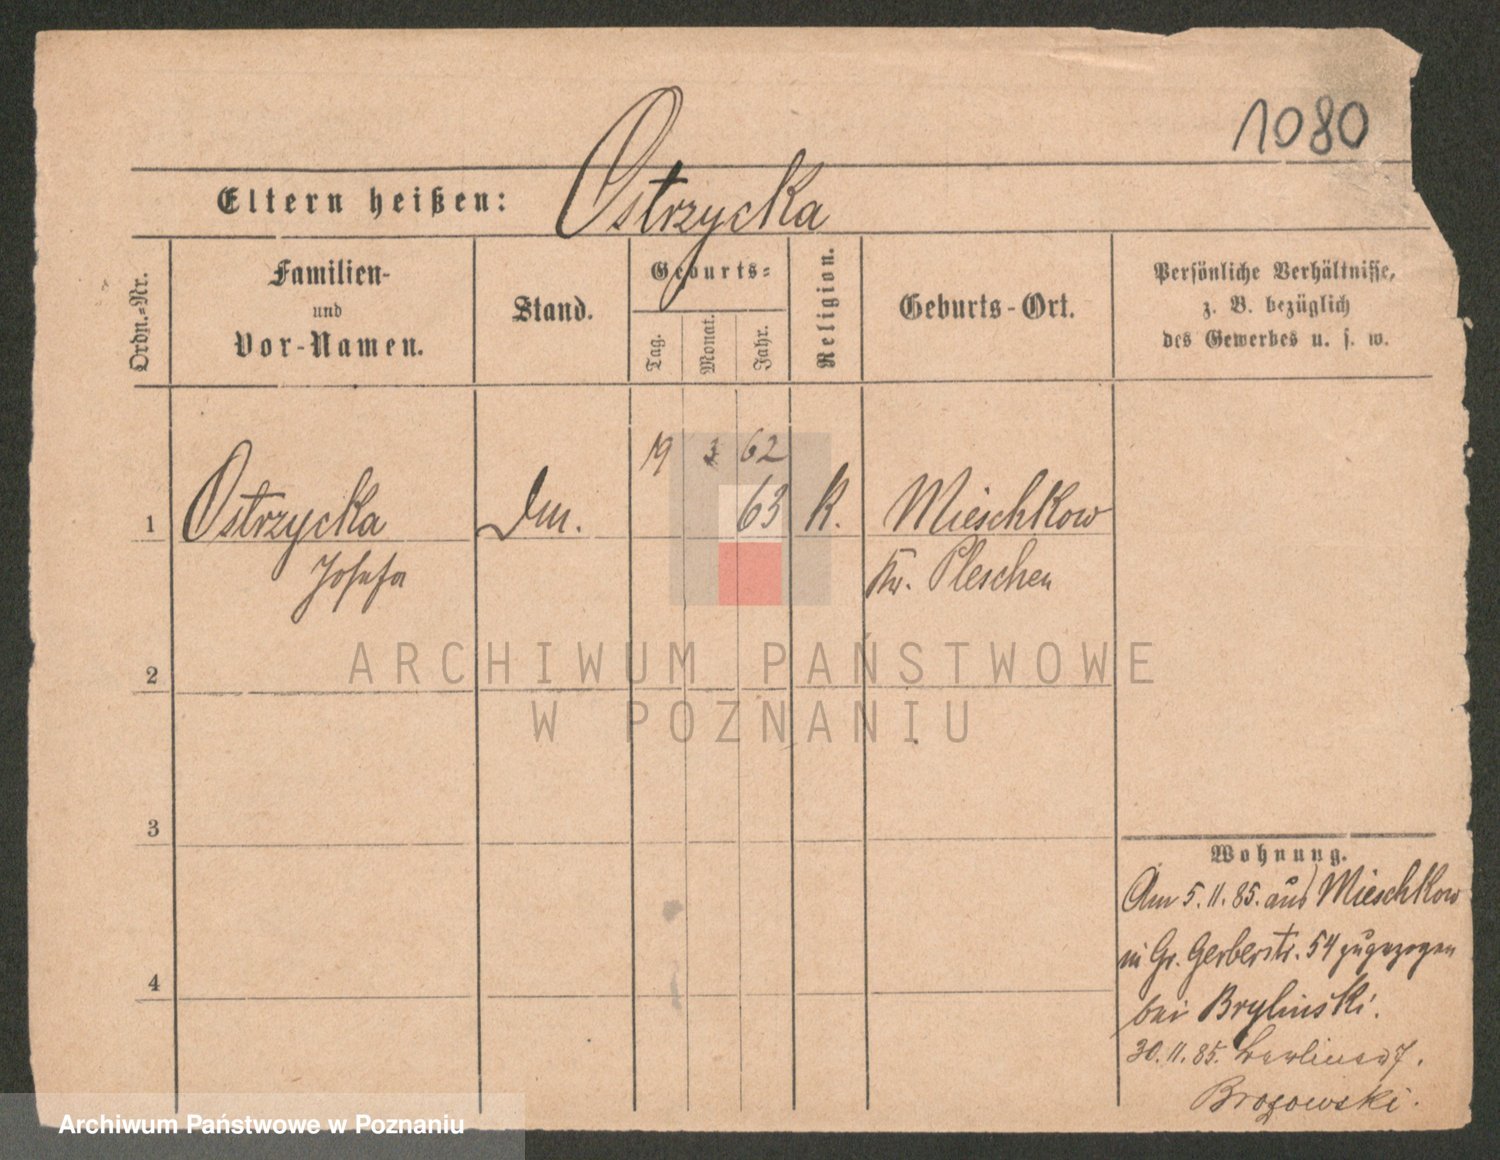 1080
Eltern heißen: Ostrzycka
Ordn.-Nr.
Familien-
und
Vor-Namen.
Stand.
Geburts-
Tag.
Monat.
Jahr.
Religion.
Geburts-Ort.
Persönliche Verhältnisse,
z. B. bezüglich
des Gewerbes u. s. w.
19 3 62
1 Ostrzycka Dm. 63 K. Mieschkow
Josefa Kr. Pleschen
2
3
4
Wohnung.
Am 5.11.85. aus Mieschkow
in Gr. Gerberstr. 54 zugezogen
bei Brylinski.
30.11.85. Berlinerstr 7.
Brozowski.
ARCHIWUM PAŃSTWOWE
W POZNANIU
Archiwum Państwowe w Poznaniu